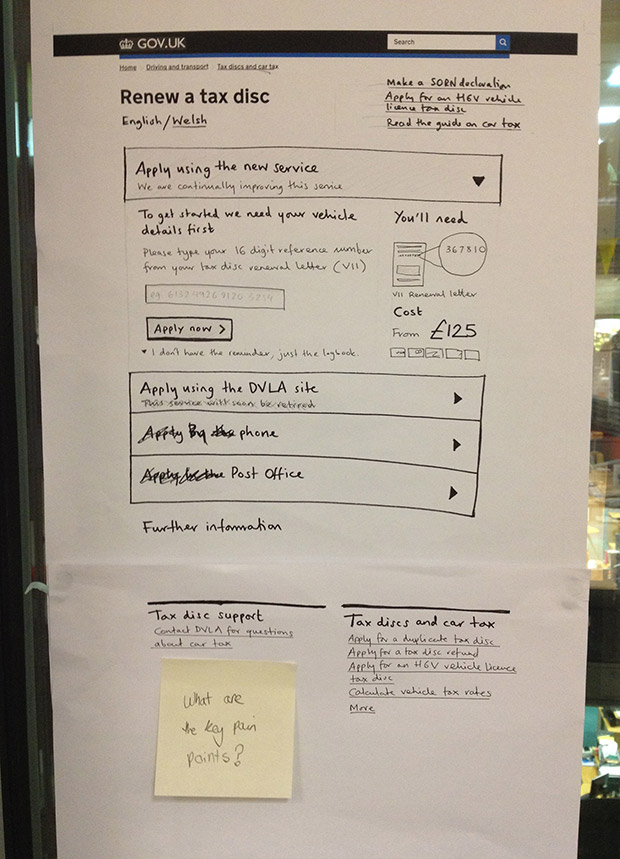 GOV.UK
Search
Home Driving and transport Tax discs and car tax
Renew a tax disc
English/Welsh
Make a SORN declaration
Apply for an HGV vehicle
licence tax disc
Read the guide on car tax
Apply using the new service
We are continually improving this service
To get started we need your vehicle
details first
Please type your 16 digit reference number
from your tax disc renewal letter (V11)
Apply now >
I don't have the reminder, just the logbook.
You'll need
367810
V11 Renewal letter
Cost
From £125
Apply using the DVLA site
This service will soon be retired
Apply by the phone
Apply by the Post Office
Further information
Tax disc support
Contact DVLA for questions
about car tax
Tax discs and car tax
Apply for a duplicate tax disc
Apply for a tax disc refund
Apply for an HGV vehicle licence
tax disc
Calculate vehicle tax rates
More
What are
the key pain
points?